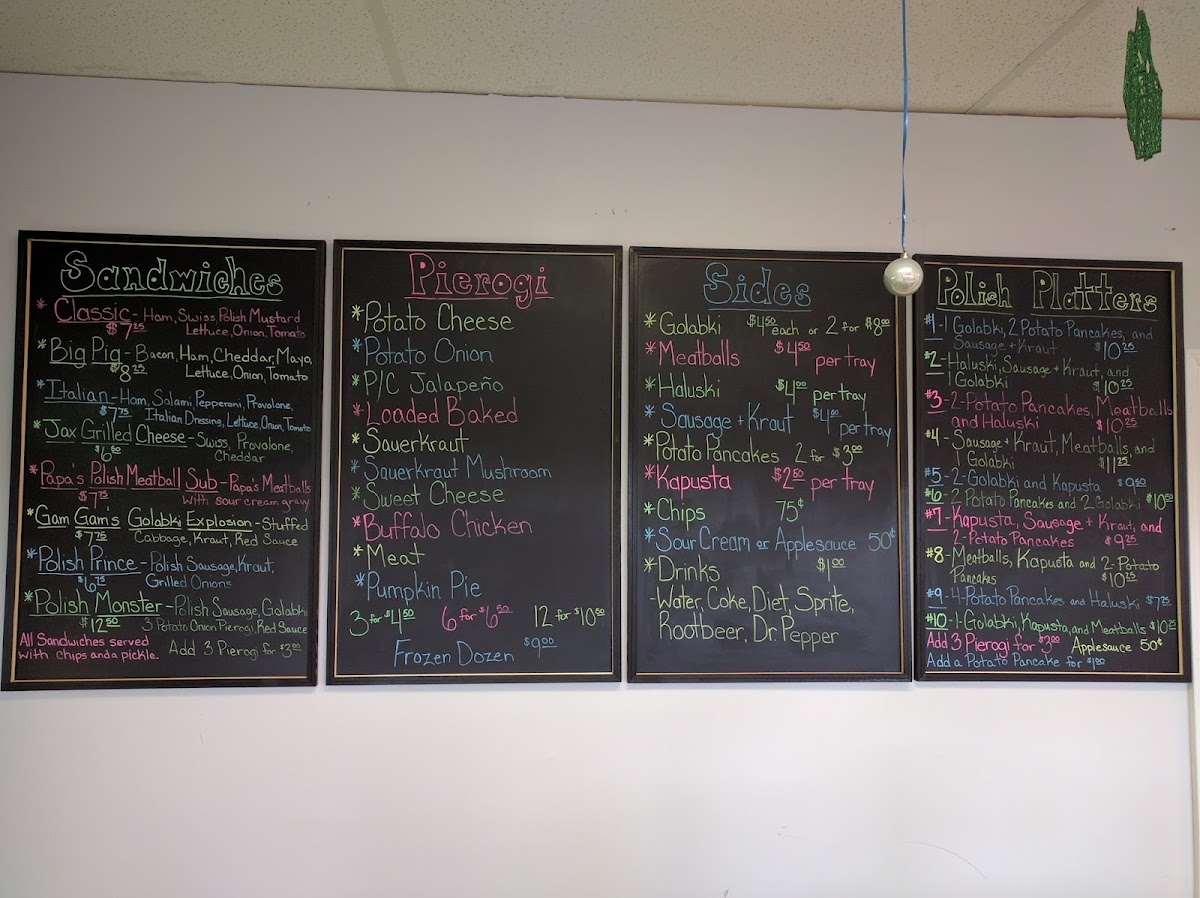 Sandwiches
* Classic - Ham, Swiss, Polish Mustard
$7.25 Lettuce, Onion, Tomato
* Big Pig - Bacon, Ham, Cheddar, Mayo,
$8.25 Lettuce, Onion, Tomato
* Italian - Ham, Salami, Pepperoni, Provolone,
$7.75 Italian Dressing, Lettuce, Onion, Tomato
* Jax Grilled Cheese - Swiss, Provolone,
$6.50 Cheddar
* Papa's Polish Meatball Sub - Papa's Meatballs
$7.75 with sour cream gravy
* Gam Gam's Golabki Explosion - Stuffed
$7.75 Cabbage, Kraut, Red Sauce
* Polish Prince - Polish Sausage, Kraut,
$6.75 Grilled Onions
* Polish Monster - Polish Sausage, Golabki
$12.50 3 Potato Onion Pierogi, Red Sauce
All Sandwiches served
with chips and a pickle. Add 3 Pierogi for $3.00
Pierogi
* Potato Cheese
* Potato Onion
* P/C Jalapeño
* Loaded Baked
* Sauerkraut
* Sauerkraut Mushroom
* Sweet Cheese
* Buffalo Chicken
* Meat
* Pumpkin Pie
3 for $4.50 6 for $6.50 12 for $10.50
Frozen Dozen $9.00
Sides
* Golabki $4.50 each or 2 for $8.00
* Meatballs $4.50 per tray
* Haluski $4.00 per tray
* Sausage + Kraut $4.00 per tray
* Potato Pancakes 2 for $3.00
* Kapusta $2.50 per tray
* Chips 75¢
* Sour Cream or Applesauce 50¢
* Drinks $1.00
- Water, Coke, Diet, Sprite,
Rootbeer, Dr. Pepper
Polish Platters
#1 - 1 Golabki, 2 Potato Pancakes, and
Sausage + Kraut $10.25
#2 - Haluski, Sausage + Kraut, and
1 Golabki $10.25
#3 - 2-Potato Pancakes, Meatballs
and Haluski $10.25
#4 - Sausage + Kraut, Meatballs, and
1 Golabki $11.25
#5 - 2-Golabki and Kapusta $9.50
#6 - 2 Potato Pancakes and 2 Golabki $10.50
#7 - Kapusta, Sausage + Kraut, and
2-Potato Pancakes $9.25
#8 - Meatballs, Kapusta and 2-Potato
Pancakes $10.25
#9 - 4-Potato Pancakes and Haluski $7.25
#10 - 1-Golabki, Kapusta, and Meatballs $10.25
Add 3 Pierogi for $3.00 Applesauce 50¢
Add a Potato Pancake for $1.00